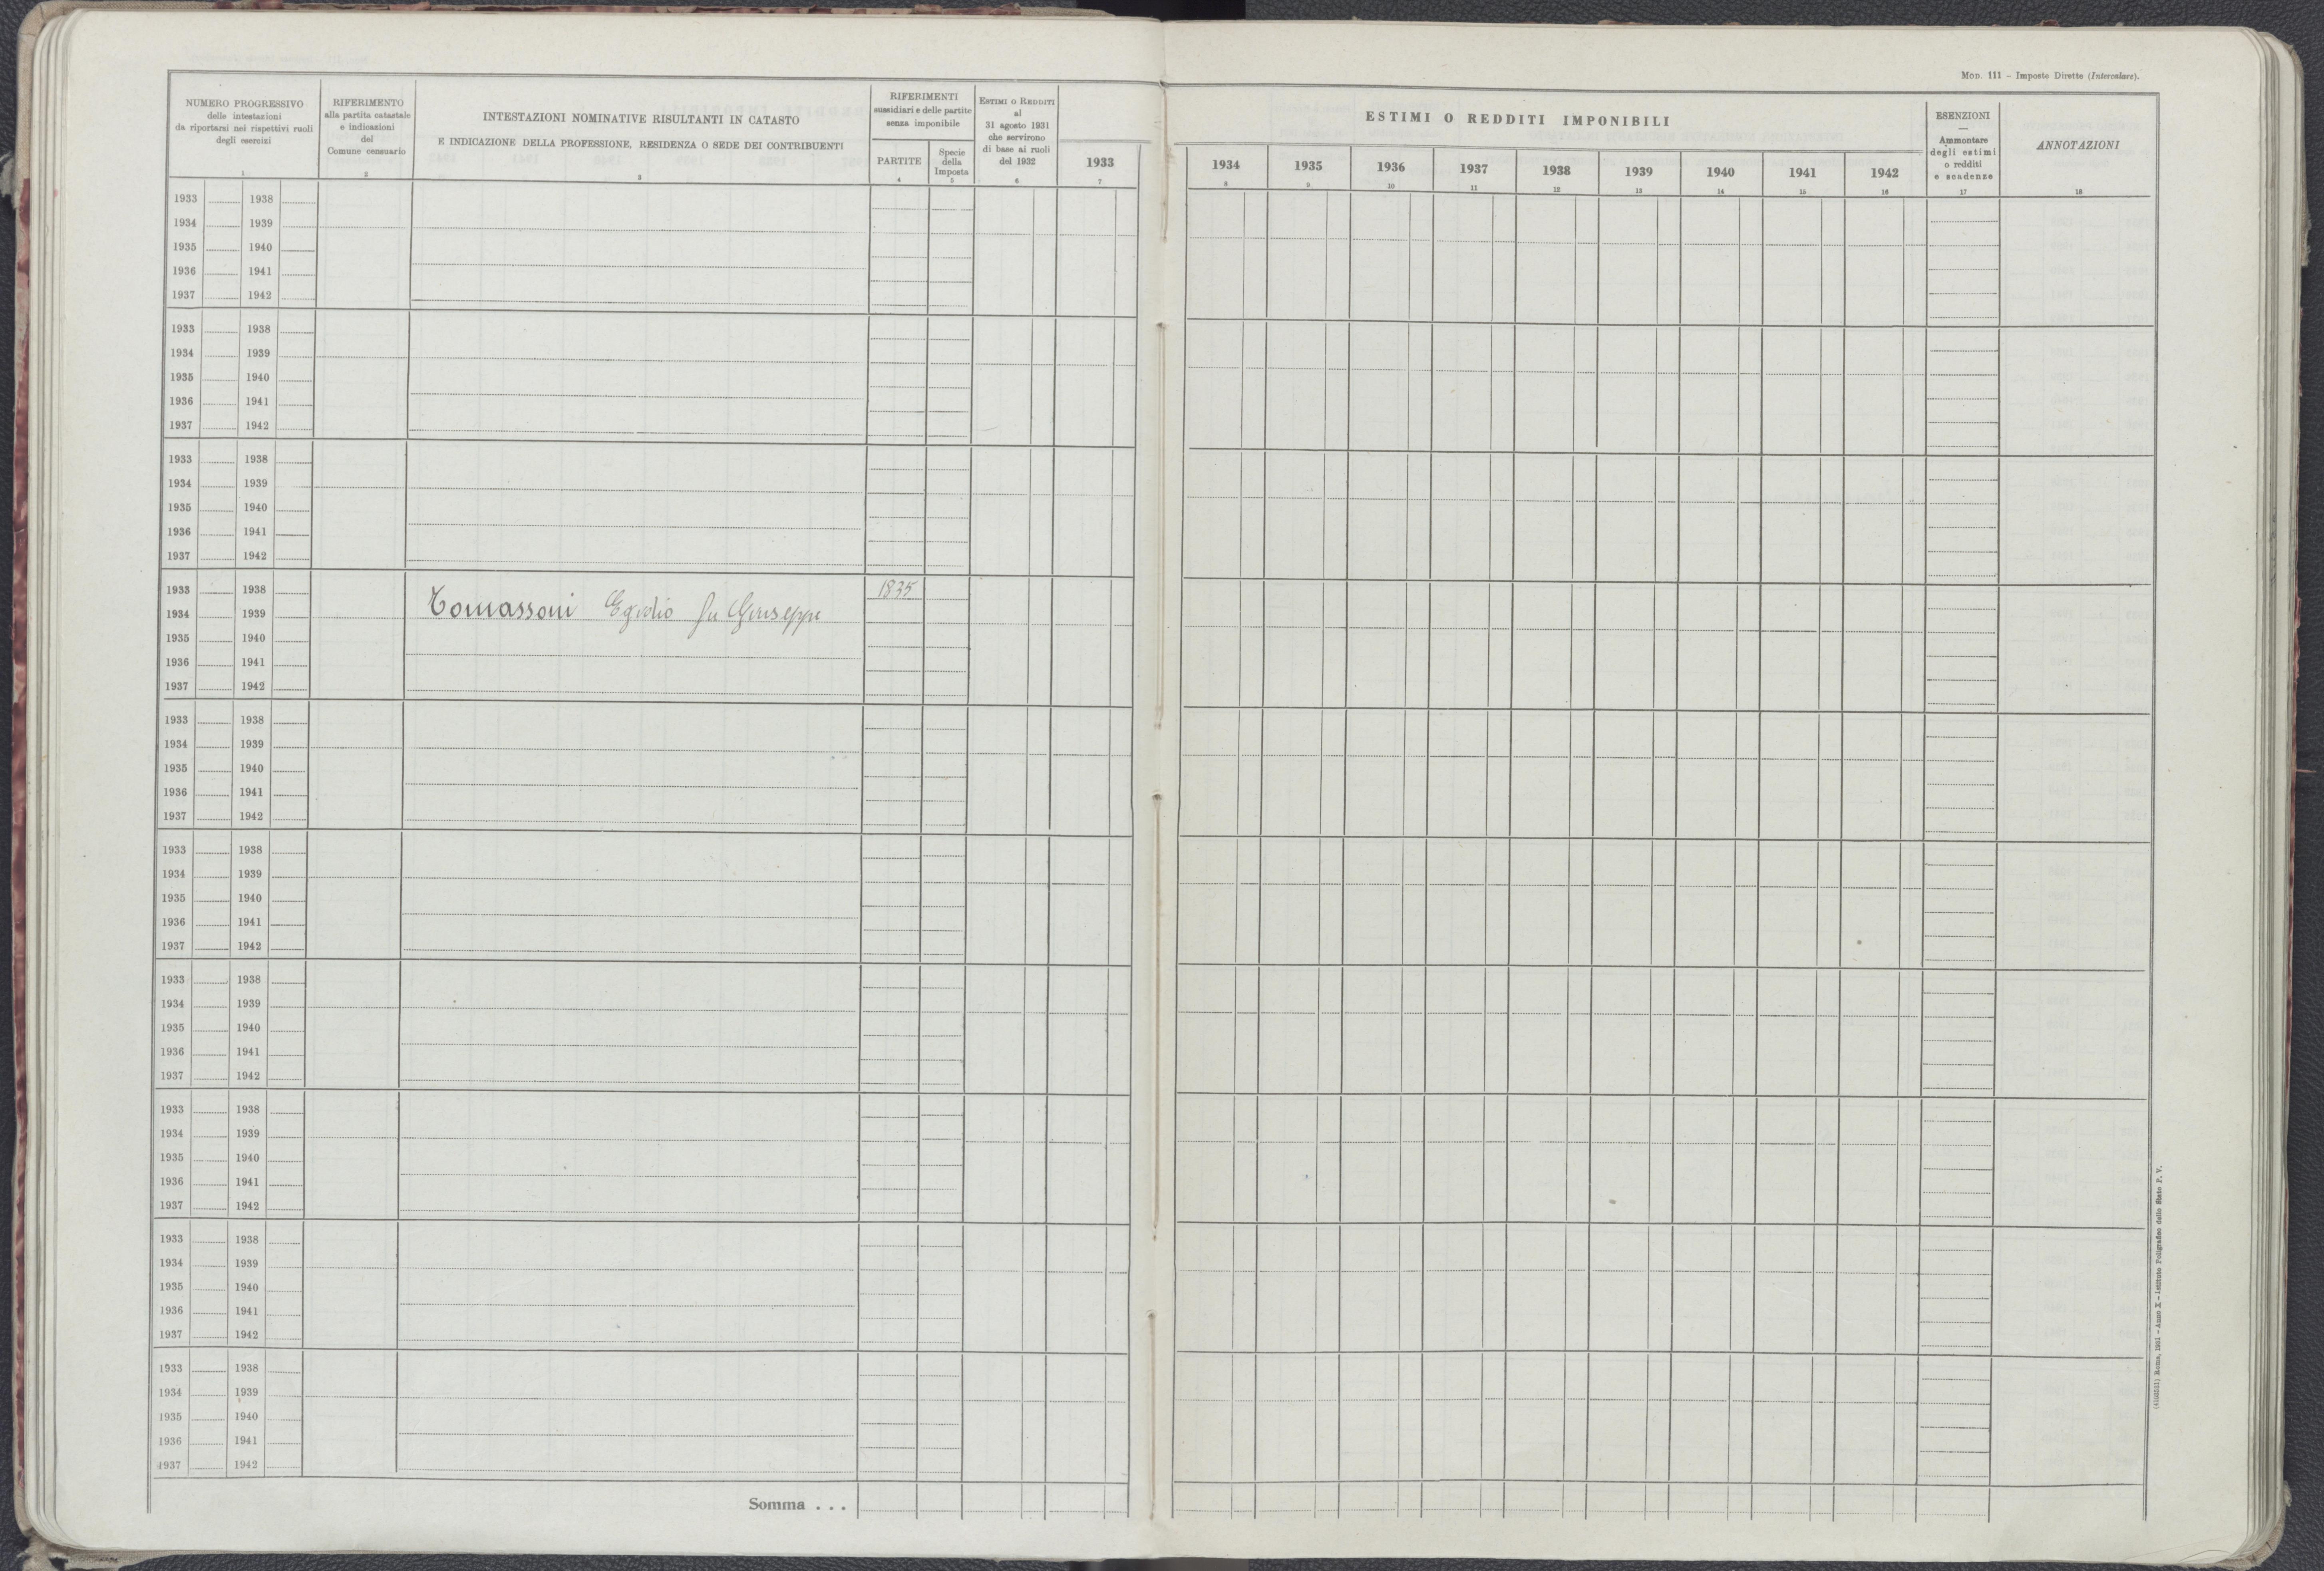 Mod. 111 - Imposte Dirette (Intercalare).
NUMERO PROGRESSIVO
delle intestazioni
da riportarsi nei rispettivi ruoli
degli esercizi
1
RIFERIMENTO
alla partita catastale
e indicazioni
del
Comune censuario
2
INTESTAZIONI NOMINATIVE RISULTANTI IN CATASTO
E INDICAZIONE DELLA PROFESSIONE, RESIDENZA O SEDE DEI CONTRIBUENTI
3
RIFERIMENTI
sussidiari e delle partite
senza imponibile
PARTITE
4
Specie
della
Imposta
5
Estimi o Redditi
al
31 agosto 1931
che servirono
di base ai ruoli
del 1932
6
1933
7
ESTIMI O REDDITI IMPONIBILI
1934 1935 1936 1937 1938 1939 1940 1941 1942
8 9 10 11 12 13 14 15 16
ESENZIONI
—
Ammontare
degli estimi
o redditi
e scadenze
17
ANNOTAZIONI
18
1933 1938
1934 1939
1935 1940
1936 1941
1937 1942
1933 1938
1934 1939
1935 1940
1936 1941
1937 1942
1933 1938
1934 1939
1935 1940
1936 1941
1937 1942
1933 1938 1835
1934 1939 Tomassoni Egidio fu Giuseppe
1935 1940
1936 1941
1937 1942
1933 1938
1934 1939
1935 1940
1936 1941
1937 1942
1933 1938
1934 1939
1935 1940
1936 1941
1937 1942
1933 1938
1934 1939
1935 1940
1936 1941
1937 1942
1933 1938
1934 1939
1935 1940
1936 1941
1937 1942
1933 1938
1934 1939
1935 1940
1936 1941
1937 1942
1933 1938
1934 1939
1935 1940
1936 1941
1937 1942
Somma . . .
Roma, 1931 - Anno X - Istituto Poligrafico dello Stato P. V.